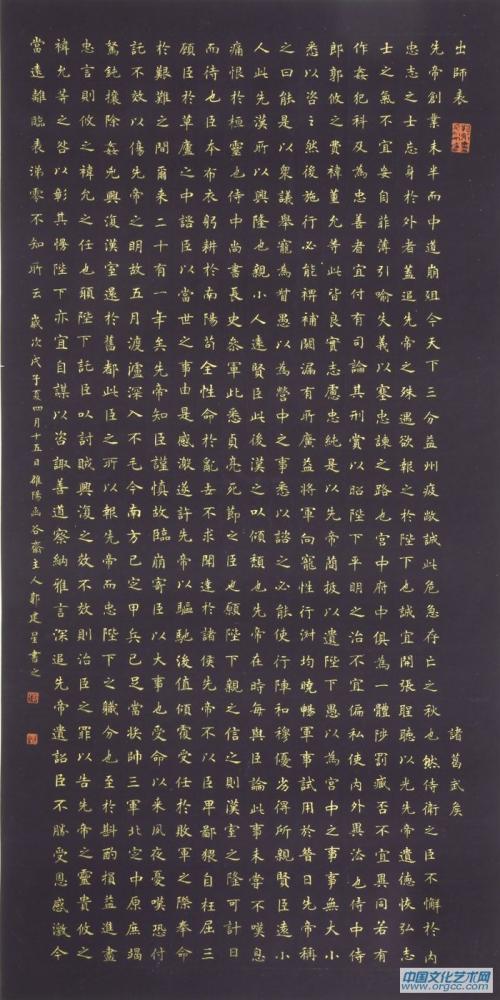 出師表 諸葛武矦
先帝創業未半而中道崩殂今天下三分益州疲敝誠此危急存亡之秋也然侍衛之臣不懈於内
忠志之士忘身於外者蓋追先帝之殊遇欲報之於陛下也誠宜開張聖聽以光先帝遺德恢弘志
士之氣不宜妄自菲薄引喻失義以塞忠諫之路也宮中府中俱為一體陟罰臧否不宜異同若有
作姦犯科及為忠善者宜付有司論其刑賞以昭陛下平明之治不宜偏私使内外異法也侍中侍
郎郭攸之費禕董允等此皆良實志慮忠純是以先帝簡拔以遺陛下愚以為宮中之事事無大小
悉以咨之然後施行必能裨補闕漏有所廣益將軍向寵性行淑均曉暢軍事試用於昔日先帝稱
之曰能是以衆議舉寵為督愚以為營中之事悉以諮之必能使行陣和穆優劣得所親賢臣遠小
人此先漢所以興隆也親小人遠賢臣此後漢之以傾頹也先帝在時每與臣論此事未嘗不嘆息
痛恨於桓靈也侍中尚書長史參軍此悉貞亮死節之臣也願陛下親之信之則漢室之隆可計日
而待也臣本布衣躬耕於南陽苟全性命於亂世不求聞達於諸侯先帝不以臣卑鄙猥自枉屈三
顧臣於草廬之中諮臣以當世之事由是感激遂許先帝以驅馳後值傾覆受任於敗軍之際奉命
於艱難之間爾来二十有一年矣先帝知臣謹慎故臨崩寄臣以大事也受命以来夙夜憂嘆恐付
託不效以傷先帝之明故五月渡瀘深入不毛今南方已定甲兵已足當奬帥三軍北定中原庶竭
駑鈍攘除姦兇興復漢室還於舊都此臣之所以報先帝而忠陛下之職分也至於斟酌損益進盡
忠言則攸之禕允之任也願陛下託臣以討賊興復之效不效則治臣之罪以告先帝之靈責攸之
禕允等之咎以彰其慢陛下亦宜自謀以咨諏善道察納雅言深追先帝遺詔臣不勝受恩感激今
當遠離臨表涕零不知所云 歲次戊子夏四月十五日雒陽函谷齋主人郭建星書之
中国文化艺术网
www.orgcc.com